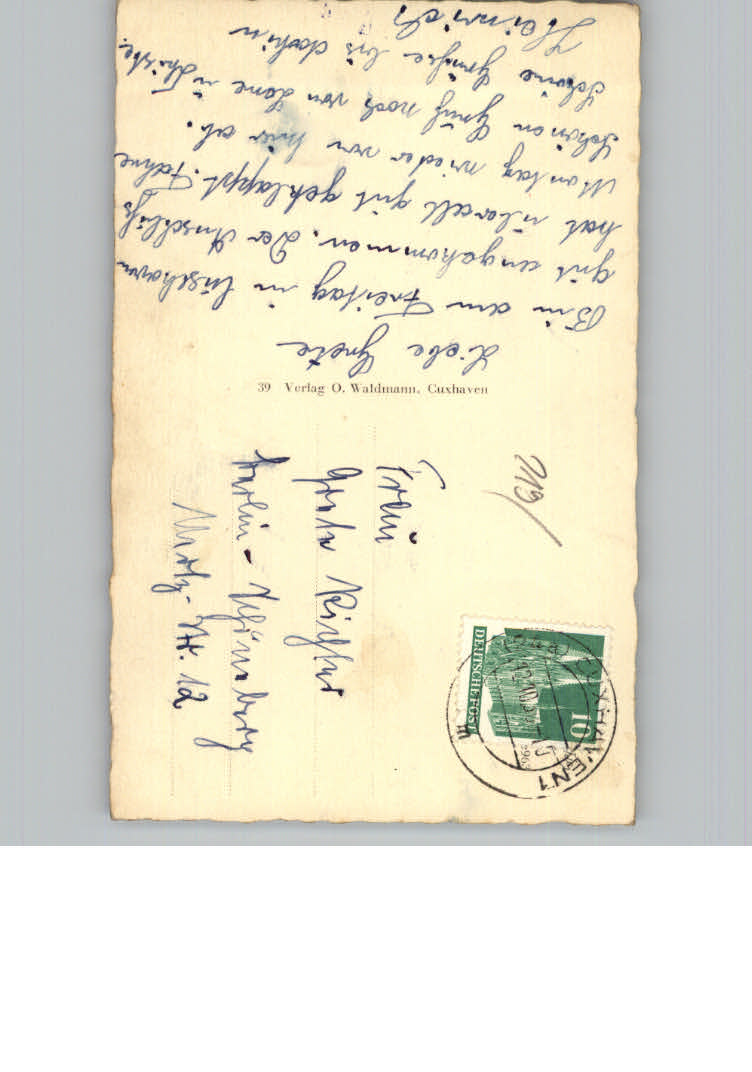 Liebe Grete
Bin am Freitag in Cuxhaven
gut angekommen. Der Anschluß
hat überall gut geklappt. Fahre
Montag wieder von hier ab.
Schönen Gruß noch von
Schöne Grüße bis dahin
Heinrich
39 Verlag O. Waldmann, Cuxhaven
Frau
Grete Richter
Berlin-Schöneberg
Metz-Str. 12
219/
DEUTSCHE POST
10
CUXHAVEN 1